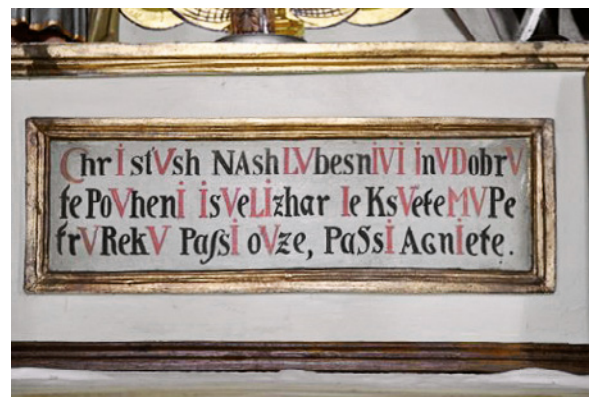 Chrİ stVsh NAsh LVbesnİVİ İnVDobrV
te PoVhenİ İsVeLİzhar Ie KsVeteMVPe
trVRekV PaſsİoVze, PaSsİ AGnİete.